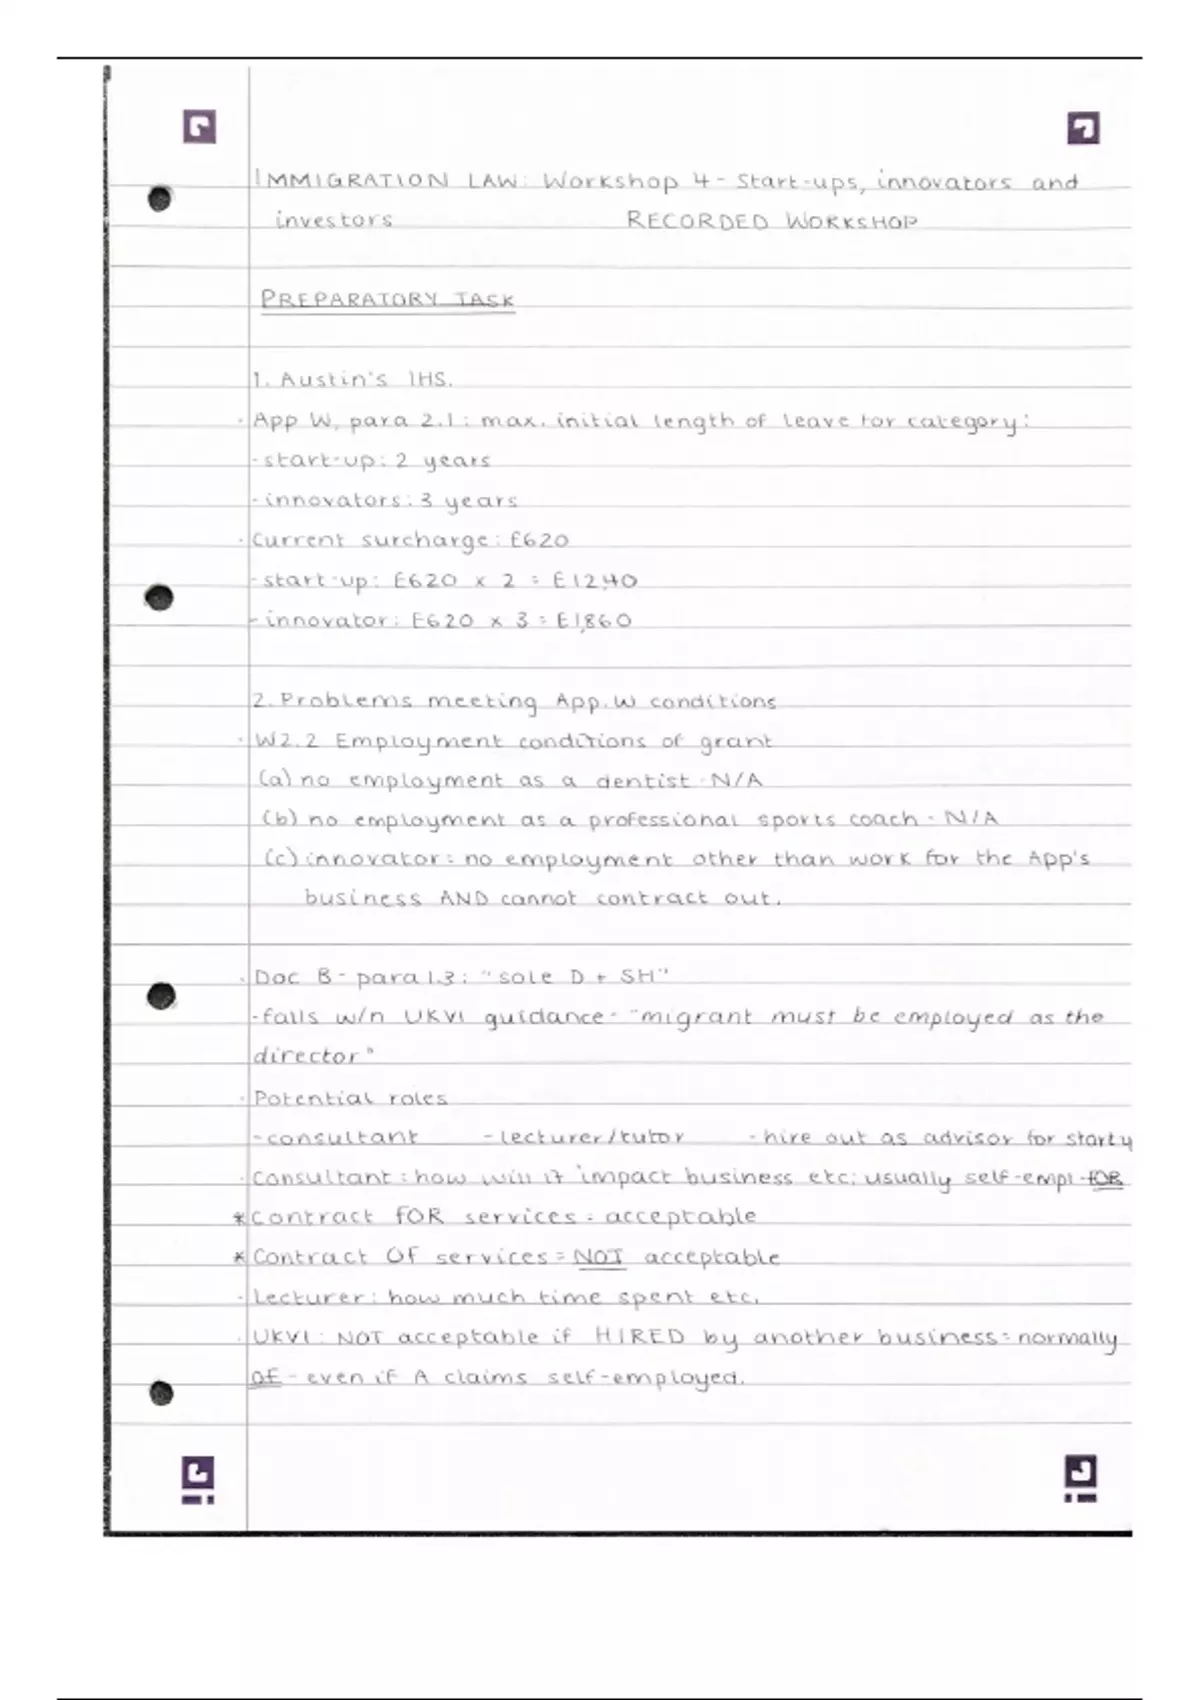 IMMIGRATION LAW: Workshop 4 - Start-ups, innovators and
investors RECORDED WORKSHOP
PREPARATORY TASK
1. Austin's IHS.
· App W, para 2.1: max. initial length of leave for category:
- start-up: 2 years
- innovators: 3 years
· Current surcharge: £620
- start-up: £620 x 2 = £1240
- innovator: £620 x 3 = £1,860
2. Problems meeting App. W conditions
· W2.2 Employment conditions of grant
(a) no employment as a dentist - N/A
(b) no employment as a professional sports coach - N/A
(c) innovator: no employment other than work for the App's
business AND cannot contract out.
· Doc B - para 1.3: "sole D + SH"
- falls w/n UKVI guidance - "migrant must be employed as the
director"
· Potential roles
- consultant - lecturer/tutor - hire out as advisor for start u
· Consultant: how will it impact business etc; usually self-empl - FOR
* Contract FOR services = acceptable
* Contract OF services = NOT acceptable
· Lecturer: how much time spent etc.
· UKVI: NOT acceptable if HIRED by another business = normally
OF - even if A claims self-employed.